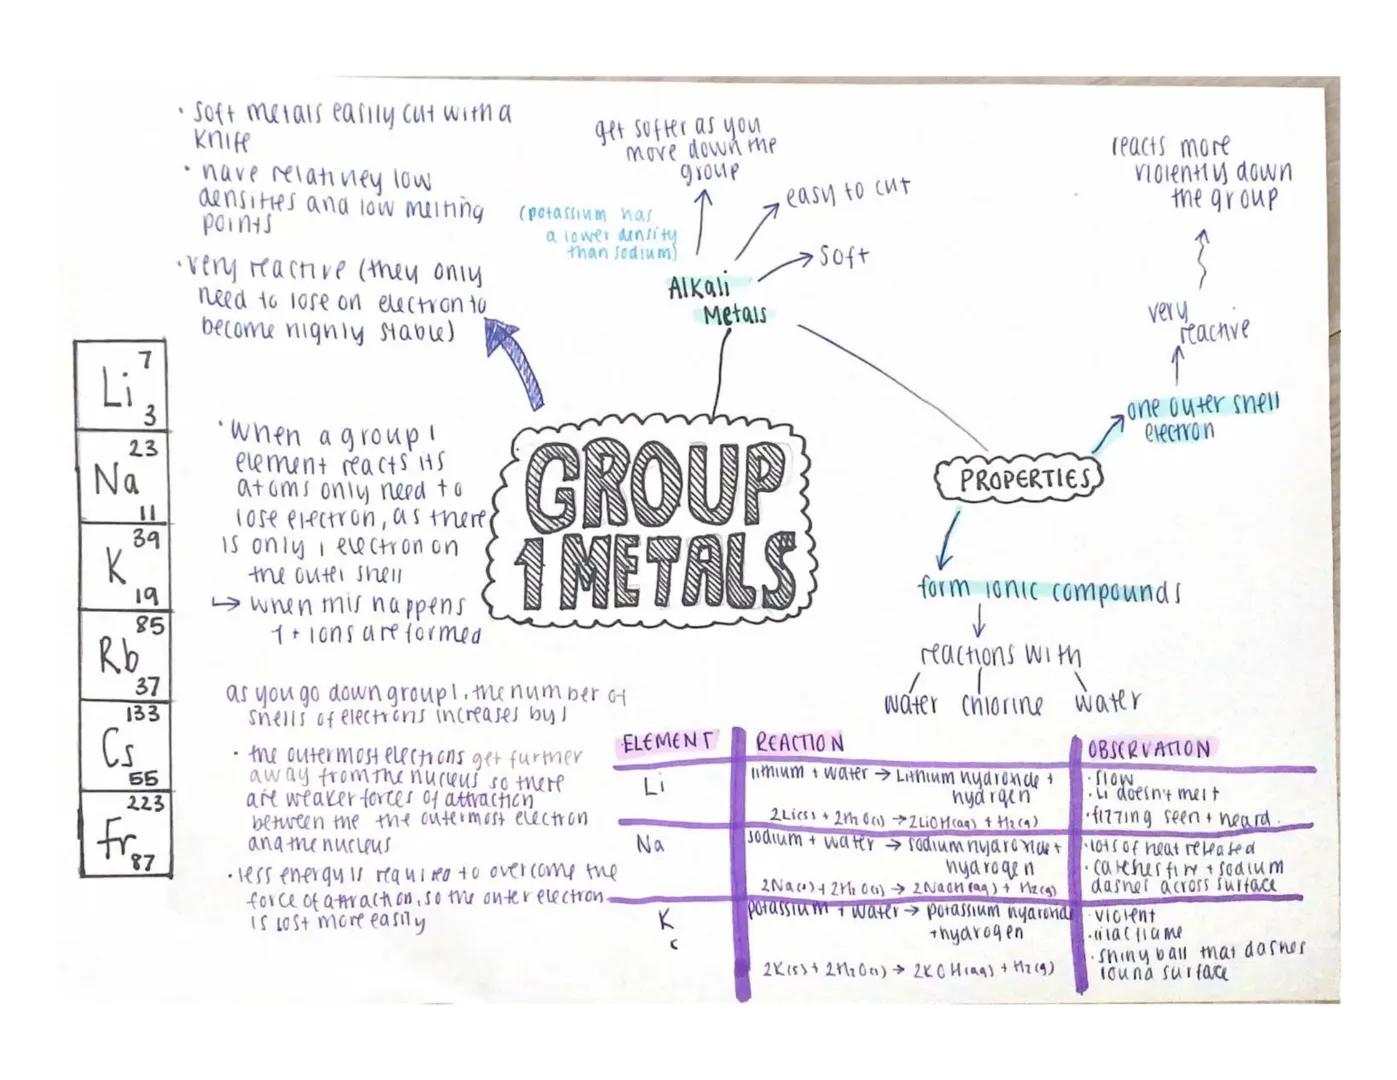 • soft metals easily cut with a
knife
• have relativley low
densities and low melting
points
• very reactive (they only
need to lose on electron to
become highly stable)
get softer as you
move down the
group
(potassium has
a lower density
than sodium)
easy to cut
soft
Alkali
Metals
reacts more
violently down
the group
very
reactive
one outer shell
electron
PROPERTIES
form ionic compounds
reactions with
water chlorine water
GROUP
1 METALS
7
Li
3
23
Na
11
39
K
19
85
Rb
37
133
Cs
55
223
Fr
87
• When a group 1
element reacts its
atoms only need to
lose electron, as there
is only 1 electron on
the outer shell
↳ when this happens
1+ ions are formed
as you go down group 1, the number of
shells of electrons increases by 1
• the outermost electrons get further
away from the nucleus so there
are weaker forces of attraction
between the the outermost electron
and the nucleus
• less energy is required to overcome the
force of attraction, so the outer electron
is lost more easily
ELEMENT REACTION OBSERVATION
Li
lithium + water → Lithium hydroxide +
hydrgen
2Li(s) + 2H2O(l) → 2LiOH(aq) + H2(g)
• slow
• Li doesn't melt
• fizzing seen + heard
Na
sodium + water → sodium hydroxide +
hydrogen
2Na(s) + 2H2O(l) → 2NaOH(aq) + H2(g)
• lots of heat released
• catches fire + sodium
dashes across surface
K
c
potassium + water → potassium hydroxide
+ hydrogen
2K(s) + 2H2O(l) → 2KOH(aq) + H2(g)
• violent
• lilac flame
• shiny ball that dashes
round surface